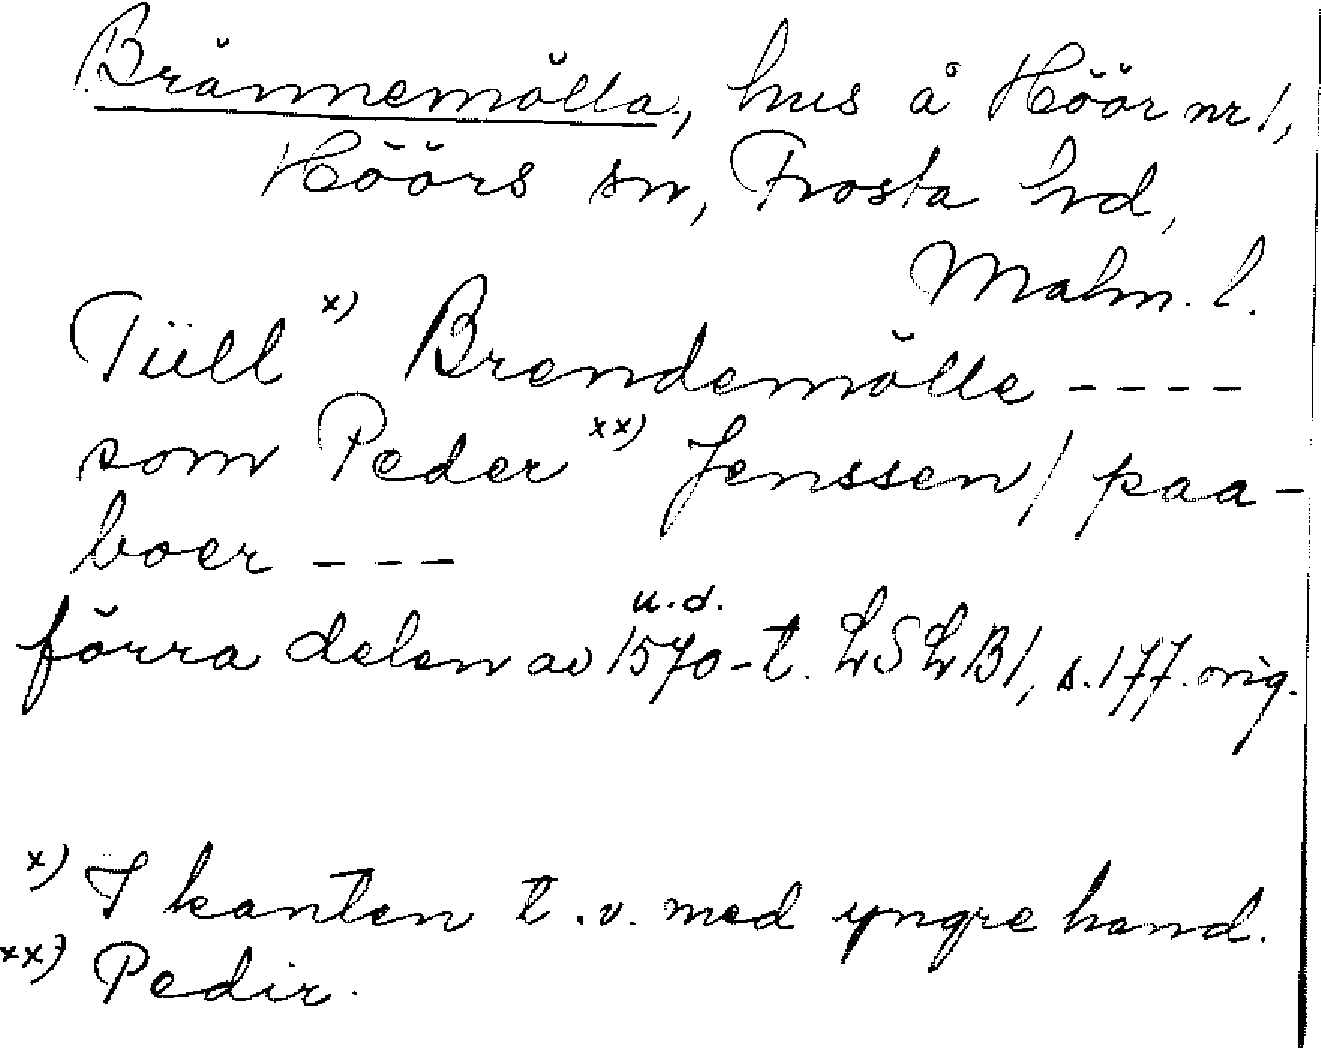 Brännemölla, hus å Höör nr 1,
Höörs sn, Frosta hd,
Malm. l.
Tüll x) Brendemölle ----
som Peder xx) Jenssen / paa-
boer ---
u.d.
förra delen av 1570-t. LSLB1, s. 177. orig.
x) I kanten t.v. med yngre hand.
xx) Pedir.